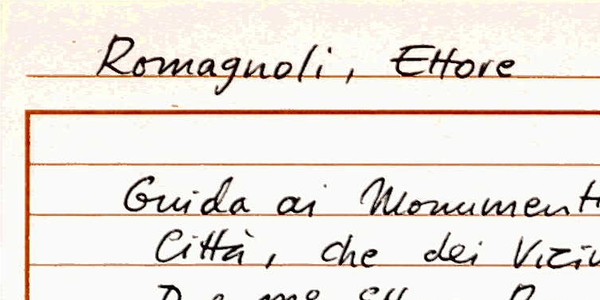 Romagnoli, Ettore
Guida ai Monumenti
Città, che dei Vicin